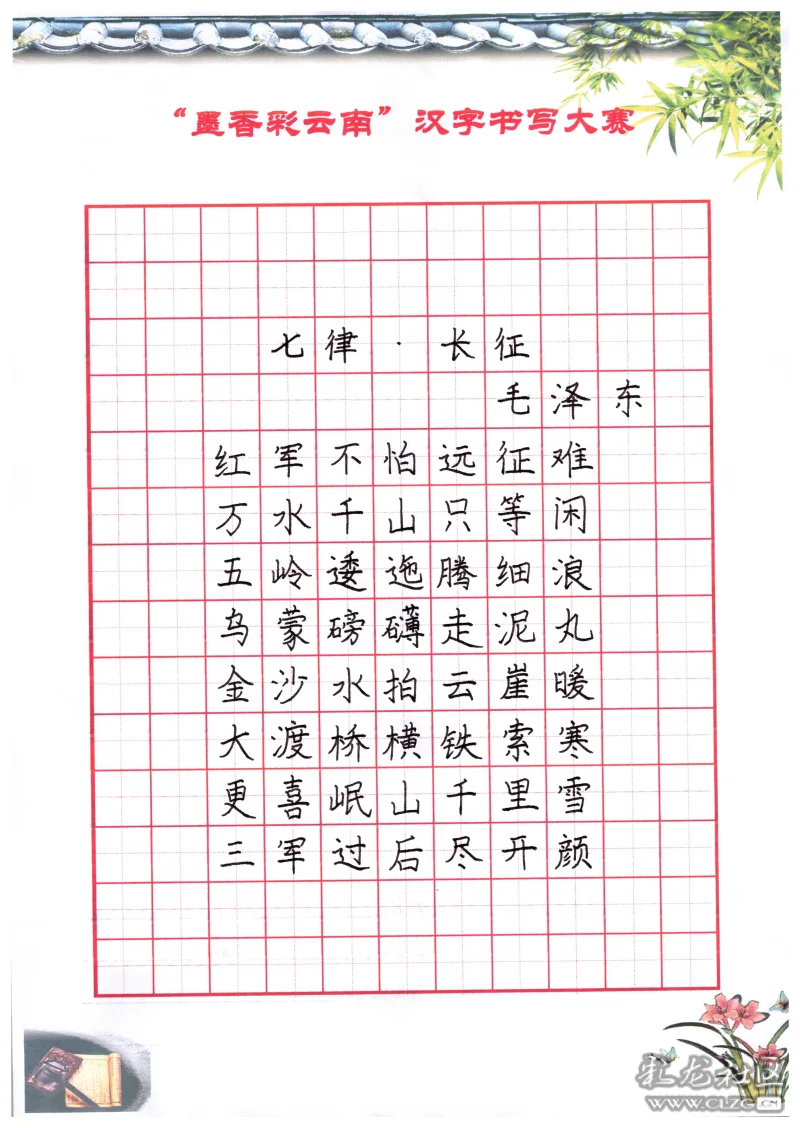 “墨香彩云南”汉字书写大赛
七律·长征
毛泽东
红军不怕远征难
万水千山只等闲
五岭逶迤腾细浪
乌蒙磅礴走泥丸
金沙水拍云崖暖
大渡桥横铁索寒
更喜岷山千里雪
三军过后尽开颜
龙社区
WWW.CLZG.CN